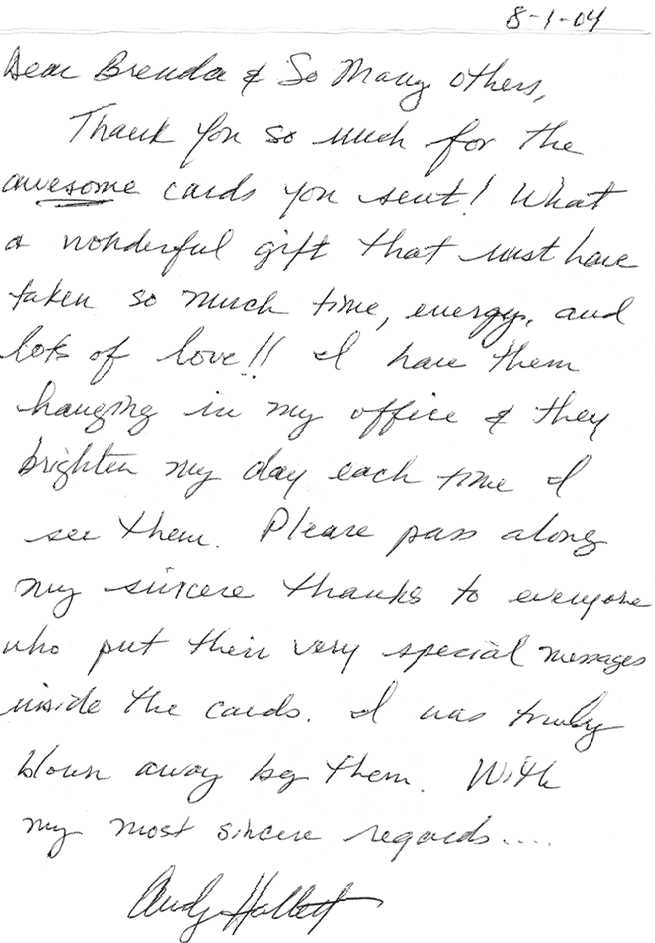 8-1-04
Dear Brenda & So Many others,
Thank you so much for the
awesome cards you sent! What
a wonderful gift that must have
taken so much time, energy, and
lots of love!! I have them
hanging in my office & they
brighten my day each time I
see them. Please pass along
my sincere thanks to everyone
who put their very special messages
inside the cards. I was truly
blown away by them. With
my most sincere regards....
Andy Hallett